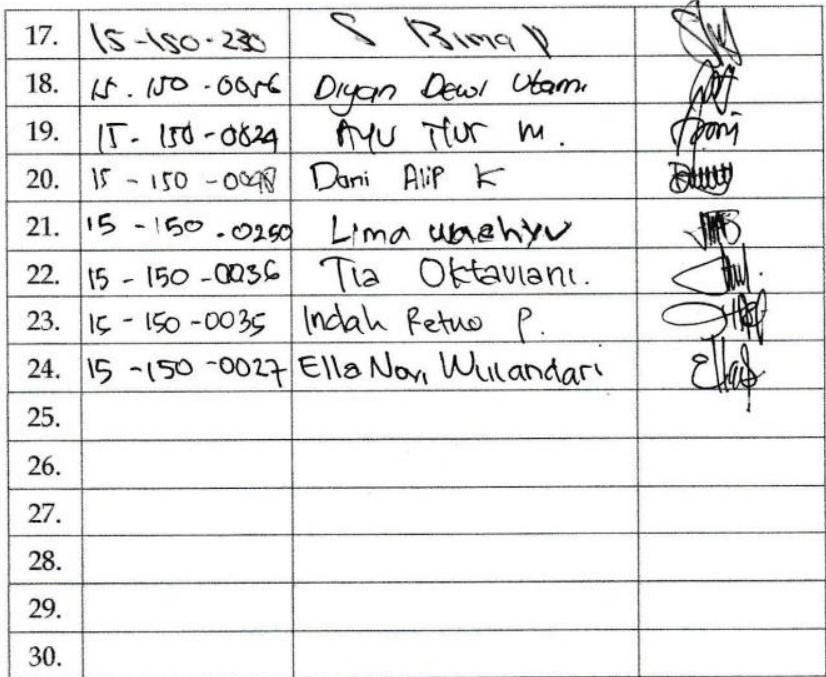 17. 15-150-230 S Bima P
18. 15.150-0056 Diyan Dewi Utami
19. 15-150-0024 Ayu Nur M.
20. 15-150-00 Dani Alip K
21. 15-150-0250 Lima wachyu
22. 15-150-0036 Tia Oktaviani.
23. 15-150-0035 Indah Retno P.
24. 15-150-0027 Ella Novi Wulandari
25.
26.
27.
28.
29.
30.